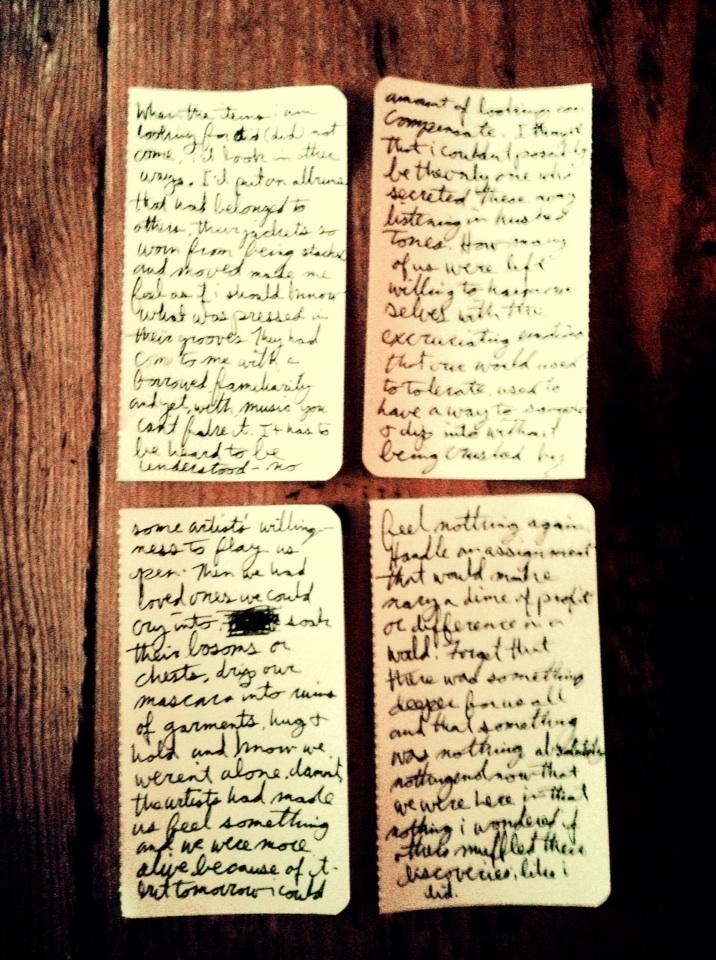 When the tears i am
looking for did (did) not
come, i'd look in other
ways. I'd put on albums
that had belonged to
others, their jackets so
worn from being stacked
and moved made me
feel as if i should know
what was pressed in
their grooves. They had
come to me with a
borrowed familiarity
and yet, with music you
can't fake it. It has to
be heard to be
understood - no
amount of looking can
compensate. I thought
that i couldn't possibly
be the only one who
secreted these away
listening in hushed
tones. How many
of us were left
willing to
selves with the
excruciating emotions
that our world used
to tolerate, used to
have a way to
& dip into without
being crushed by
some artists' willing-
ness to flay us
open. Then we had
loved ones we could
cry into, soak
their bosoms or
chests, drip our
mascara into ruins
of garments, hug &
hold and know we
weren't alone, damnit,
the artists had made
us feel something
and we were more
alive because of it -
but tomorrow i could
feel nothing again.
Handle an assignment
that would make
nary a dime of profit
or difference in a
world. Forget that
there was something
deeper for us all
and that something
was nothing absolutely
nothing and now that
we were here in that
nothing i wondered if
others muffled their
discoveries, like i
did.